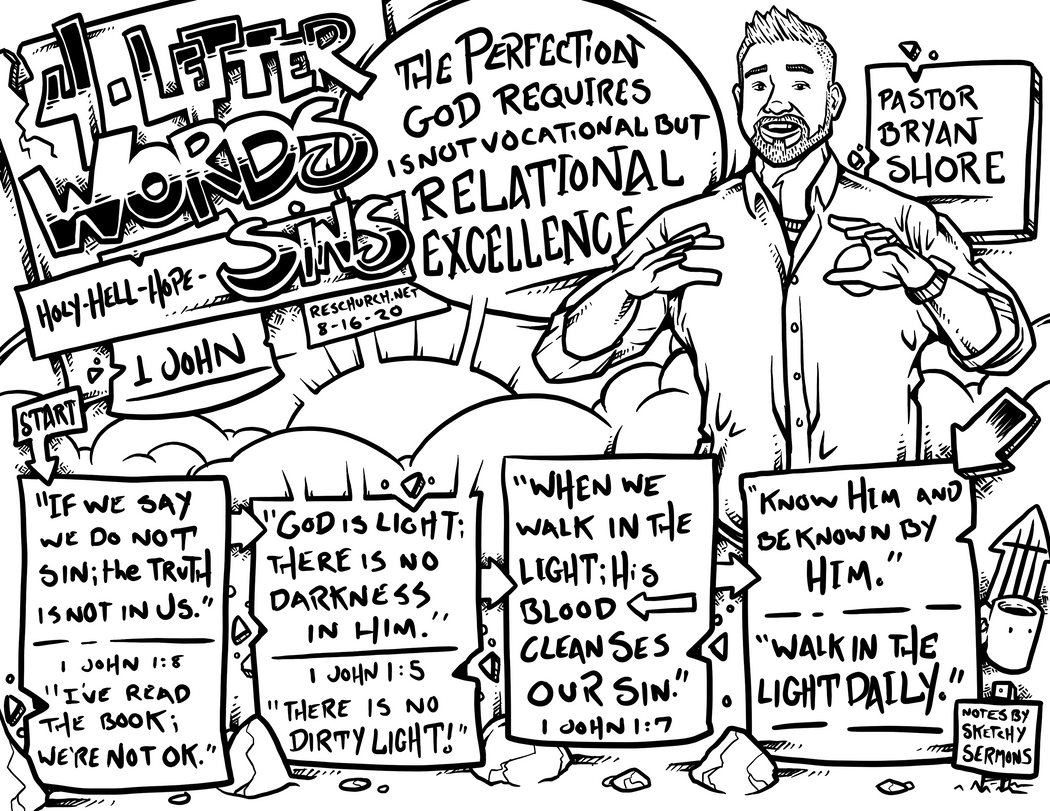 4-LETTER
WORDS
SINS
HOLY-HELL-HOPE-
RESCHURCH.NET
8-16-20
1 JOHN
THE PERFECTION
GOD REQUIRES
IS NOT VOCATIONAL BUT
RELATIONAL
EXCELLENCE
PASTOR
BRYAN
SHORE
START
"IF WE SAY
WE DO NOT
SIN; the TRUTH
IS NOT IN US."
1 JOHN 1:8
"I'VE READ
THE BOOK;
WE'RE NOT OK."
"GOD IS LIGHT;
THERE IS NO
DARKNESS
IN HIM."
1 JOHN 1:5
"THERE IS NO
DIRTY LIGHT!"
"WHEN WE
WALK IN THE
LIGHT; HIS
BLOOD
CLEANSES
OUR SIN."
1 JOHN 1:7
"KNOW HIM AND
BE KNOWN BY
HIM."
"WALK IN THE
LIGHT DAILY."
NOTES BY
SKETCHY
SERMONS